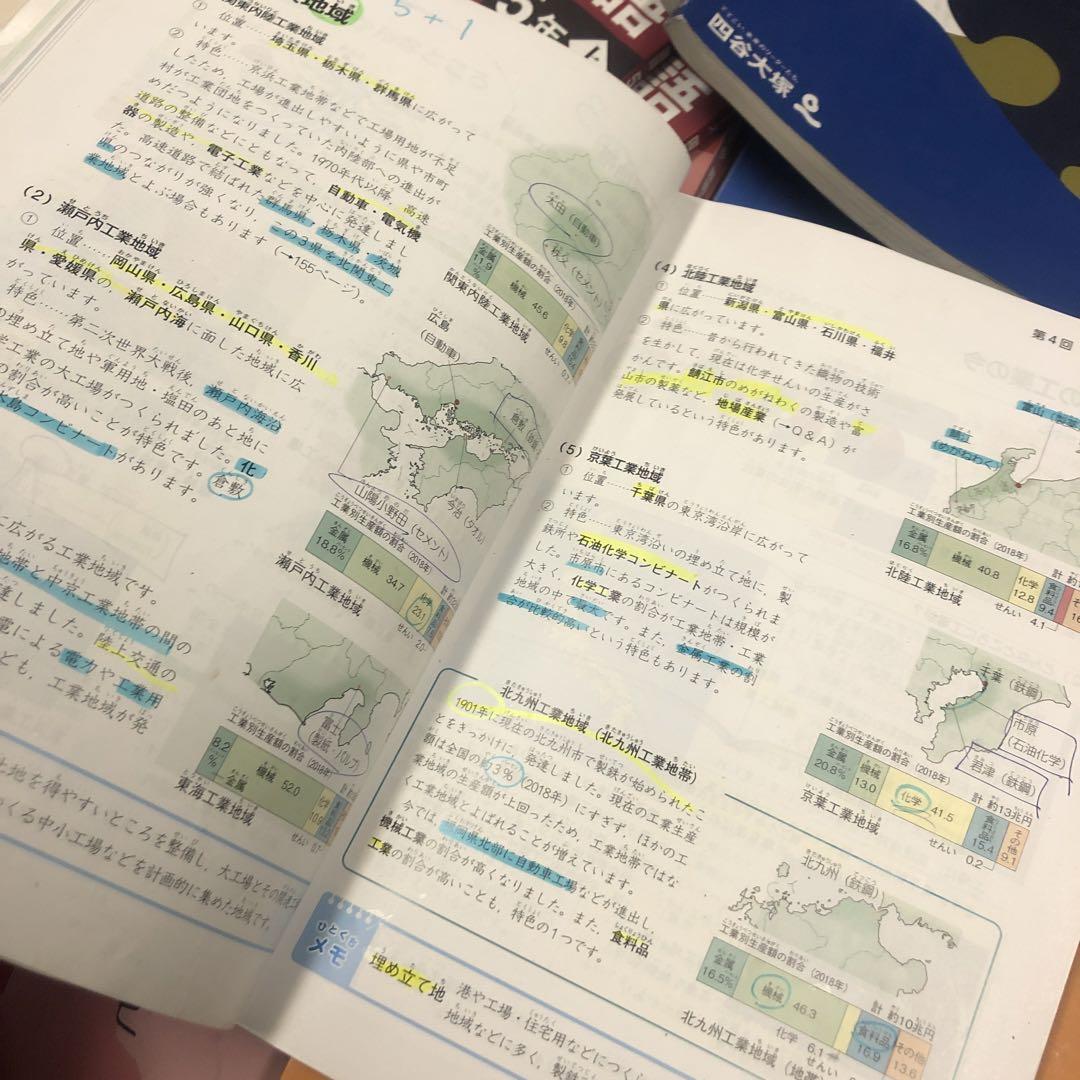 5+1
地域
関東内陸工業地域
① 位置……埼玉県・栃木県・群馬県に広がって
います。
② 特色……京浜工業地帯などで工場用地が不足
したため、工場が進出しやすいように県や市町
村が工業団地をつくっていた内陸部への進出が
めだつようになりました。1970年代以降、高速
道路の整備などにともなって、自動車・電気機
器の製造や、電子工業などを中心に発達しまし
た。高速道路で結ばれた群馬県・栃木県・茨城
県のつながりが強くなり、この3県を北関東工
業地域とよぶ場合もあります(→155ページ)。
太田(自動車)
秩父(セメント)
工業別生産額の割合(2018年)
金属
11.9
%
機械 45.6
化学
関東内陸工業地域
(2) 瀬戸内工業地域
① 位置……岡山県・広島県・山口県・香川
県・愛媛県の、瀬戸内海に面した地域に広
がっています。
特色……第二次世界大戦後、瀬戸内海沿
の埋め立て地や軍用地・塩田のあと地に
学工業の大工場がつくられました。化
の割合が高いことが特色です。倉敷
水島コンビナートがあります。
広島
(自動車)
倉敷
今治(タオル)
山陽小野田(セメント)
工業別生産額の割合(2018年)
金属
18.8%
機械 34.7
化学
23.1
2.0
瀬戸内工業地域
に広がる工業地域です。
地帯と中京工業地帯の間の
達しました。陸上交通の
電による電力や工業用
ども、工業地域が発
富士
(製紙・パルプ)
工業別生産額の割合(2018年)
8.2
%
金属
機械 52.0
化学
10.9
0.7
東海工業地域
地を得やすいところを整備し、大工場とその関連工
つくる中小工場などを計画的に集めた地域です。
四谷大塚
第4回
(4) 北陸工業地域
① 位置……新潟県・富山県・石川県・福井
県に広がっています。
② 特色……昔から行われてきた織物の技術
を生かして、現在は化学せんいの生産がさ
かんです。鯖江市のめがねわくの製造や富
山市の製薬など、地場産業(→Q&A)が
発展しているという特色があります。
富山(製薬)
鯖江
(めがねわく)
工業別生産額の割合(2018年)
金属
16.8%
機械 40.8
化学
12.8
食料品
9.4
せんい 4.1
北陸工業地域
(5) 京葉工業地域
① 位置……千葉県の東京湾沿岸に広がって
います。
② 特色……東京湾沿いの埋め立て地に、製
鉄所や石油化学コンビナートがつくられま
した。市原市にあるコンビナートは規模が
大きく、化学工業の割合が工業地帯・工業
地域の中で最大です。また、金属工業の割
合が比較的高いという特色もあります。
千葉(鉄鋼)
市原
(石油化学)
君津(鉄鋼)
工業別生産額の割合(2018年)
計 約13兆円
金属
20.8%
機械
13.0
化学 41.5
食料品
15.4
その他
9.1
せんい 0.2
京葉工業地域
北九州工業地域(北九州工業地帯)
1901年に現在の北九州市で製鉄が始められたこ
とをきっかけに、発達しました。現在の工業生産
額は全国の約3%(2018年)にすぎず、ほかの工
業地域の生産額が上回ったため、工業地帯ではな
く工業地域とよばれることが増えています。
今では、福岡県北部に自動車工場などが進出し、
機械工業の割合が高くなりました。また、食料品
工業の割合が高いことも、特色の1つです。
北九州(鉄鋼)
工業別生産額の割合(2018年)
計 約10兆円
金属
16.5%
機械 46.3
化学 6.1
せんい
食料品
16.9
その他
13.6
北九州工業地域(地帯)
ひとくち
メモ
埋め立て地
港や工場・住宅用などにつくら
地域などに多く、製鉄